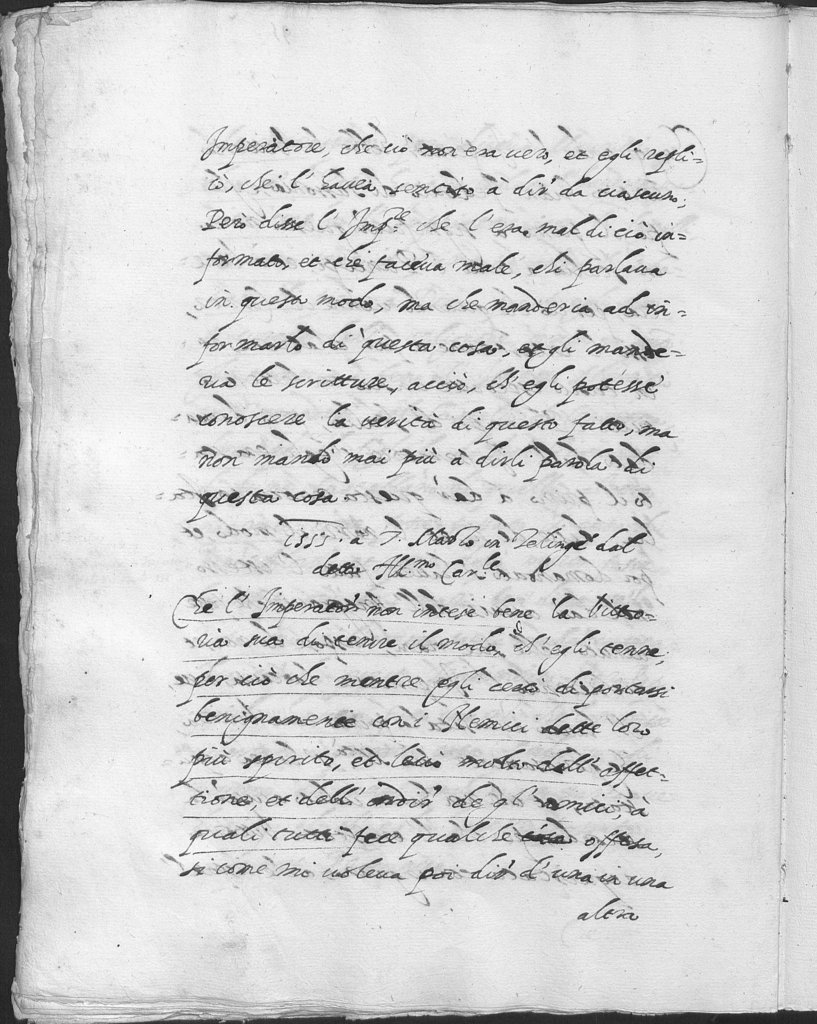 Imperatore, che ciò non era vero, et egli repli=
cò, che l'haveà sentito à dir da ciascuno;
Però disse l'Imp.re che l'era mal di ciò in=
formato, et che faceva male, chi parlava
in questo modo, ma che manderia ad in=
formarlo di questa cosa, et gli mande=
ria le scritture, acciò, ch'egli potesse
conoscere la verità di questo fatto, ma
non mandò mai più à dirli parola di
questa cosa
1553. a 7. Marzo in Telinga dal
detto Ill.mo Car.le
Che l'Imperator non intese bene la Vitto=
ria sua di tenire il modo, ch'egli tenne,
per ciò che mentre egli cercò di portarsi
benignamente con i Nemici dette loro
più spirito, et levò molto dall'affet=
tione, et dell'ardir de gl'amici, à
quali tutti fece qualche offesa,
si come mi voleva poi dir d'una in una
altra